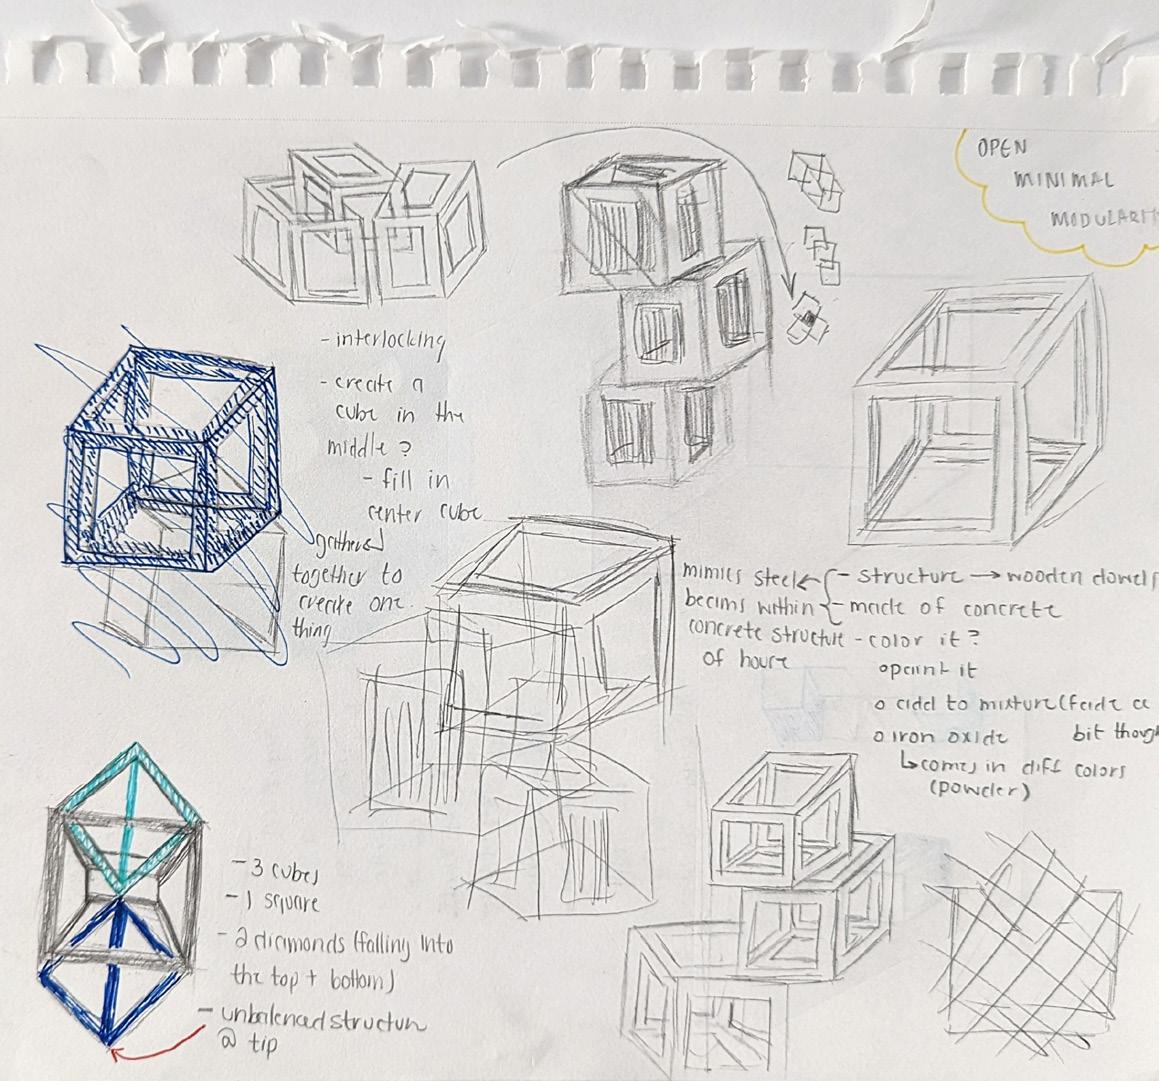 OPEN
MINIMAL
MODULARIT
- interlocking
- create a
cube in the
middle ?
- fill in
center cube
gathered
together to
create one
thing
mimics steel
beams within
concrete structure
of house
- structure → wooden dowels
- made of concrete
- color it?
o paint it
o add to mixture (fade a
bit though
o iron oxide
↳ comes in diff colors
(powder)
- 3 cubes
- 1 square
- 2 diamonds (falling into
the top + bottom)
- unbalanced structure
@ tip